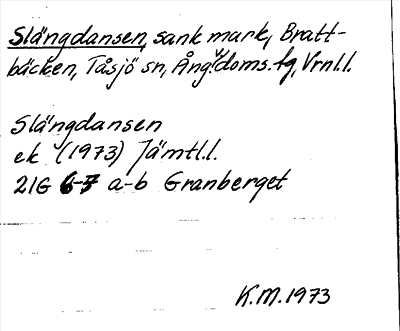 Slängdansen, sank mark, Bratt-
bäcken, Tåsjö sn, Ång:doms.tg, Vrnl.l.
Slängdansen
ek (1973) Jämtl.l.
21G 6-7 a-b Granberget
K.M. 1973